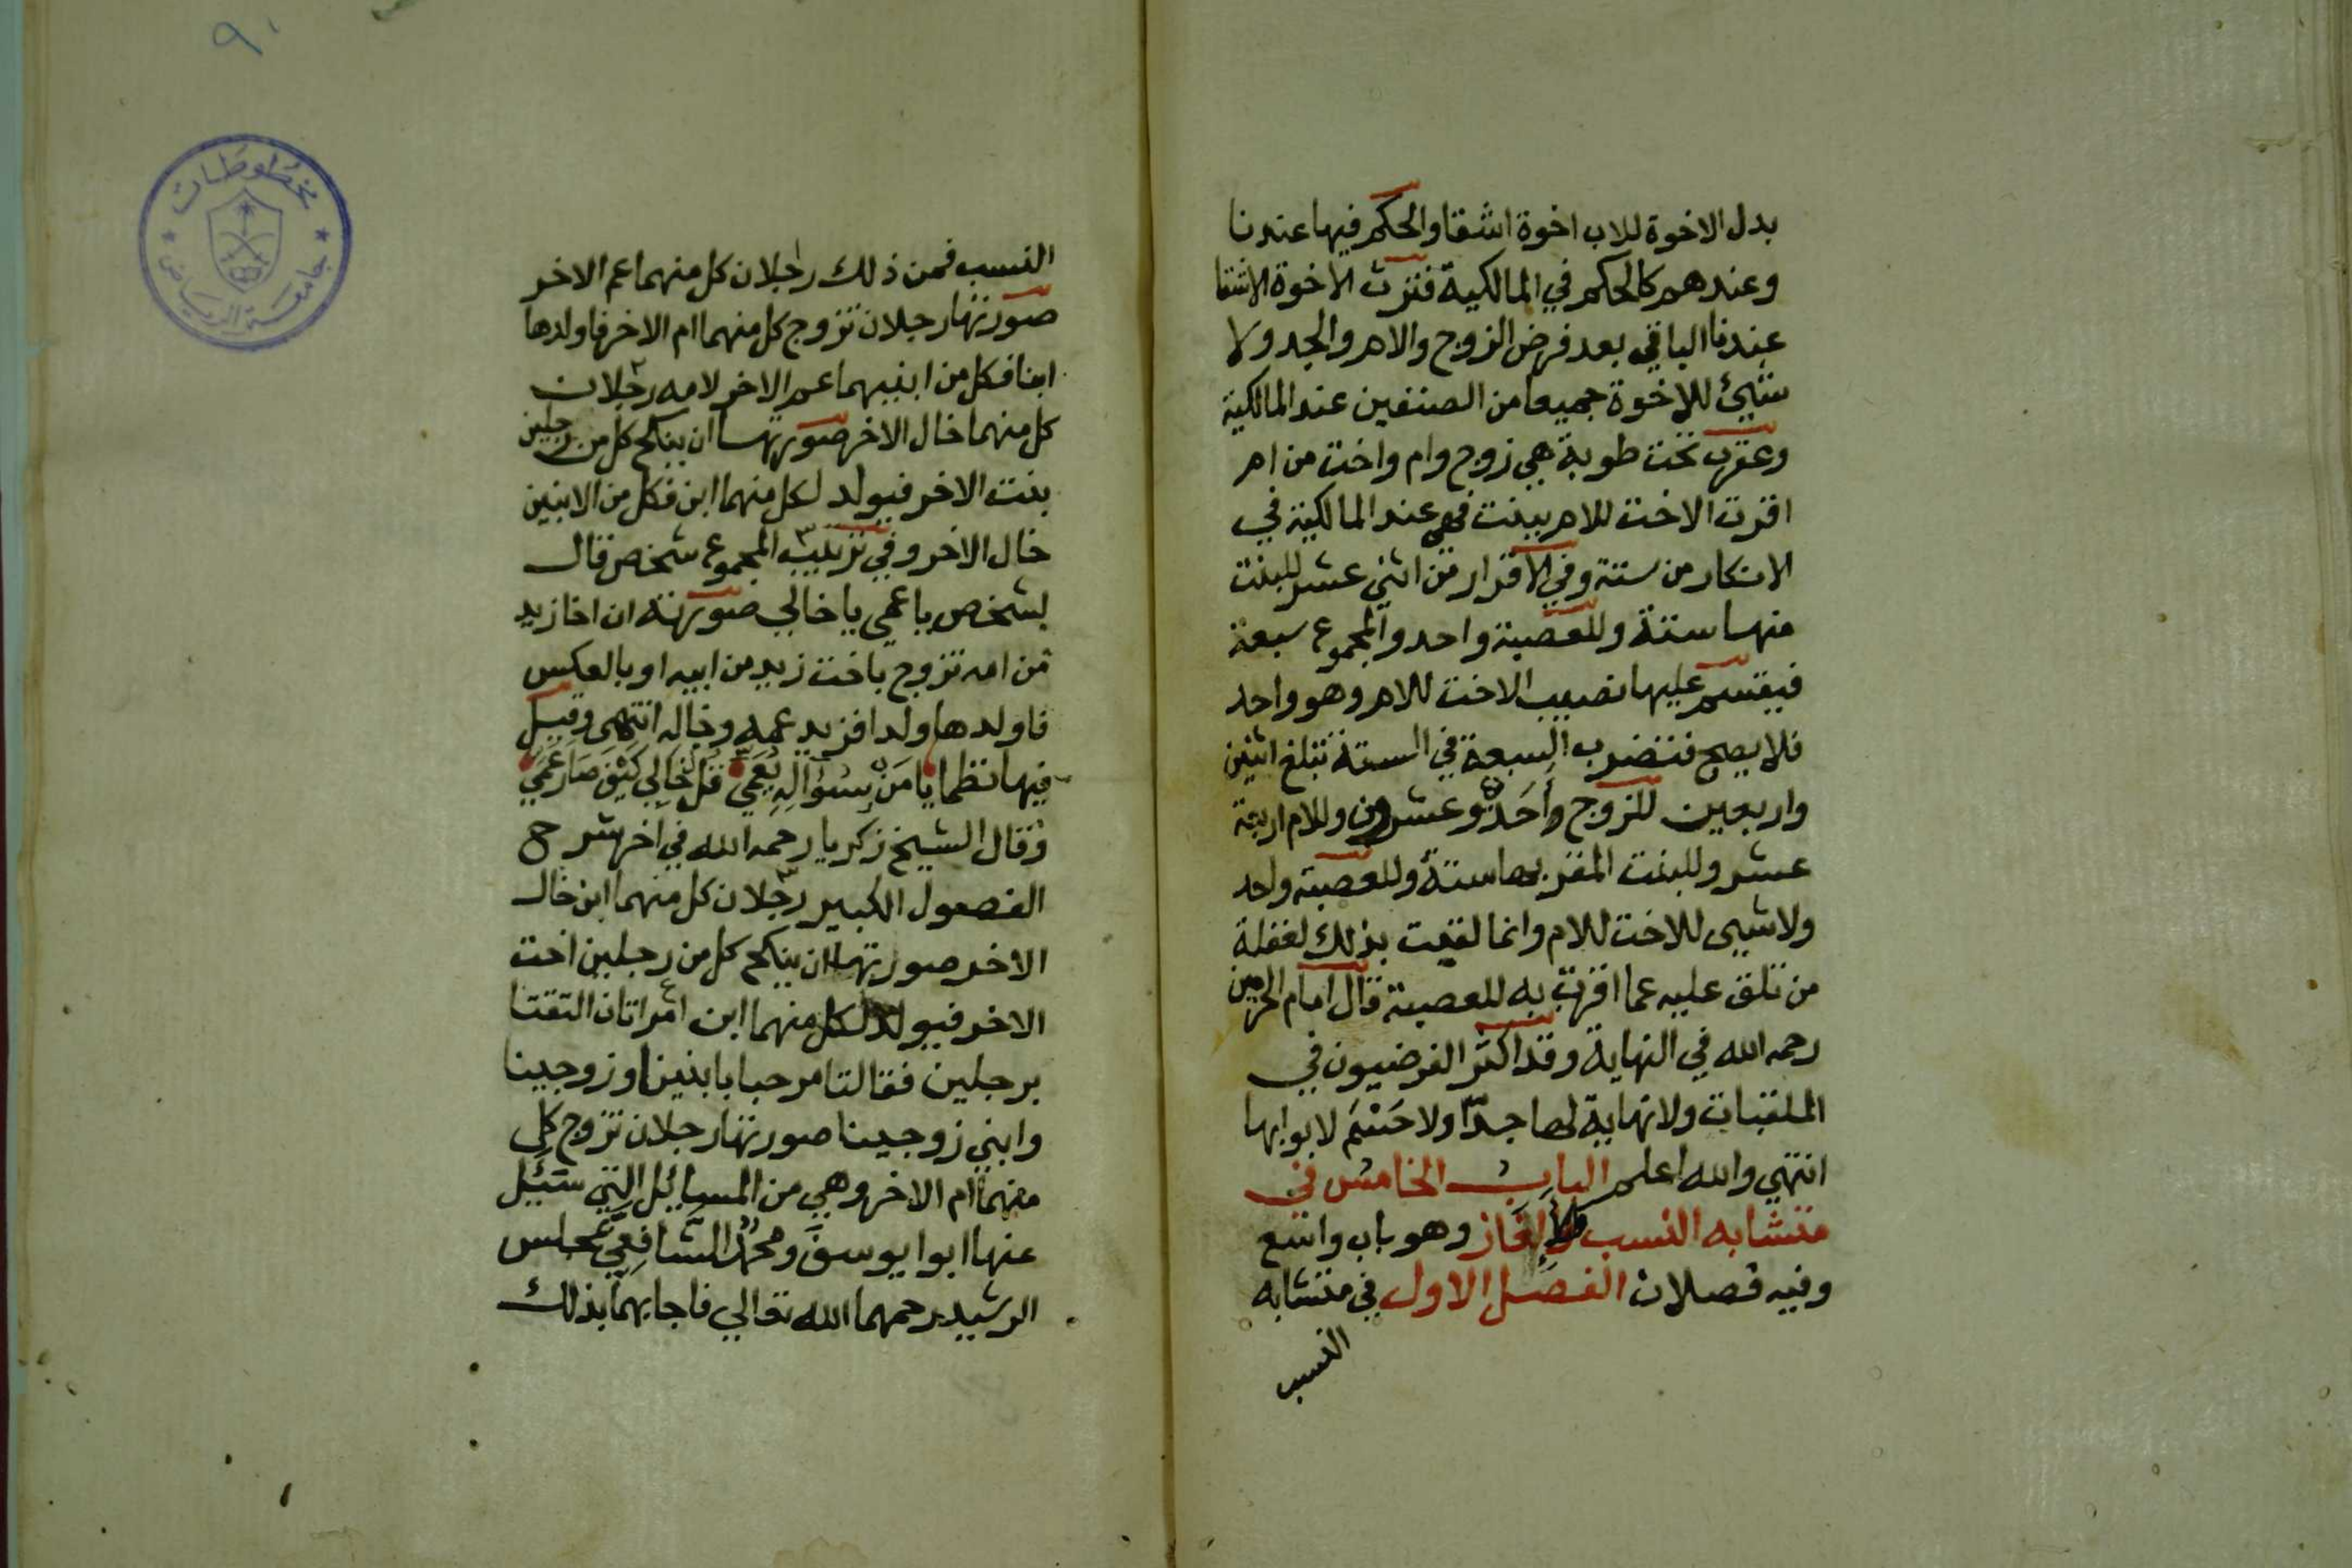 بدل الاخوة للاب اخوة اشقا والحكم فيها عندنا
وعندهم كالحكم في المالكية فترث الاخوة الاشقا
عندنا الباقي بعد فرض الزوج والام والجد ولا
شيئ للاخوة جميعا من الصنفين عند المالكية
وعقرب تحت طوبة هي زوج وام واخت من ام
اقرت الاخت للام ببنت فهي عند المالكية في
الانكار من ستة وفي الاقرار من اثني عشر للبنت
منها ستة وللعصبة واحد والمجموع سبعة
فيقسم عليها نصيب الاخت للام وهو واحد
فلا يصح فتضرب السبعة في الستة تبلغ اثنين
واربعين للزوج واحد وعشرون وللام اربعة
عشر وللبنت المقر بها ستة وللعصبة واحد
ولا شيى للاخت للام وانما لقبت بذلك لغفلة
من تلقى عليه عما اقرت به للعصبة قال امام الحرمين
رحمه الله في النهاية وقد اكثر الفرضيون في
الملقبات ولا نهاية لها جدّا ولا حَسْمَ لابوابها
انتهي والله اعلم الباب الخامس في
متشابه النسب والالغاز وهو باب واسع
وفيه فصلان الفصل الاول في متشابه
النسب
٩٠
مخطوطات
جامعة الرياض
النسب فمن ذلك رجلان كل منهما عم الاخر
صورتها رجلان تزوج كل منهما ام الاخر فاولدها
ابنا فكل من ابنيهما عم الاخر لامه رجلان
كل منهما خال الاخر صورتها ان ينكح كل من رجلين
بنت الاخر فيولد لكل منهما ابن فكل من الابنين
خال الاخر وفي المجموع شخص قال
لشخص يا عمي يا خالي صورته ان اخا زيد
من امه تزوج باخت زيد من ابيه او بالعكس
فاولدها ولدا فزيد عمه وخاله انتهى وقيل
فيها نظما يا مَن سؤاله يُعَمّي قل خالي كيف صار عمي
وقال الشيخ زكريا رحمه الله في اخر شرح
الفصول الكبير رجلان كل منهما ابن خال
الاخر صورتها ان ينكح كل من رجلين اخت
الاخر فيولد لكل منهما ابن امراتان التقتا
برجلين فقالتا مرحبا بابنينا وزوجينا
وابني زوجينا صورتها رجلان تزوج كل
منهما ام الاخر وهي من المسايل التي سئل
عنها ابوا يوسف ومحمد الشافعي بمجلس
الرشيد رحمهما الله تعالي فاجابهما بذلك